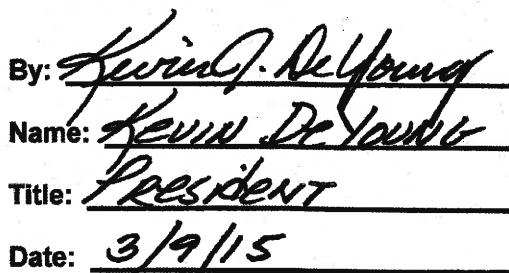 By: Kevin J. DeYoung
Name: KEVIN DEYOUNG
Title: PRESIDENT
Date: 3/9/15